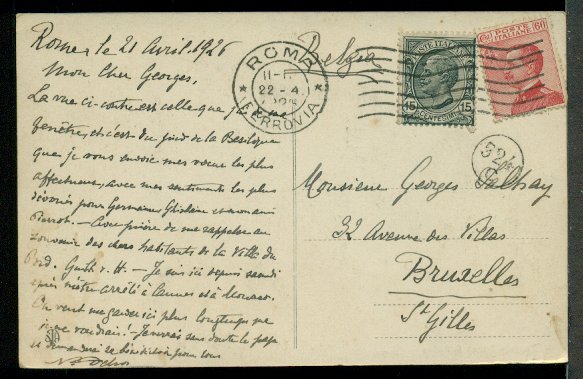 Rome, le 21 Avril 1926
Mon Cher Georges,
La vue ci-contre est celle que j'
fenêtres, et c'est du pied de la Basilique
que je vous envoie mes vœux les plus
affectueux, avec mes sentiments les plus
dévoués pour Germaine Ghislaine et mon ami
Avec prière de me rappeler au
souvenir des chers habitants de la Villa du
Je suis ici depuis samedi
après m'être arrêté à Cannes et à
On veut me garder ici plus longtemps que
je ne voudrais! Je verrai sans doute le pape
et demanderai sa bénédiction pour tous
ROMA
22 - 4
FERROVIA
Belgio
POSTE ITALIANE
15
CENTESIMI
POSTE
ITALIANE
60
Monsieur Georges
32 Avenue des Villas
Bruxelles
St Gilles